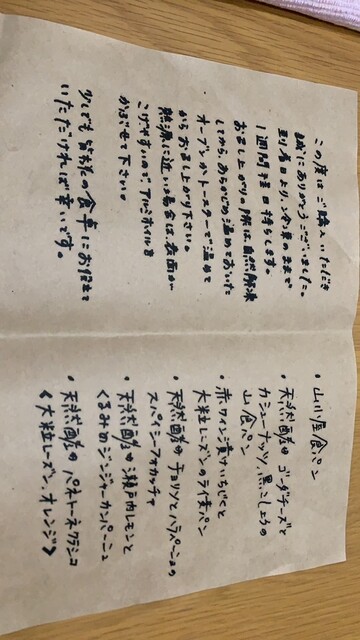 この度はご購入いただき
誠にありがとうございました。
到着日より、冷凍のままで
1週間程日持ちします。
お召し上がりの際は自然解凍
してから、あらかじめ温めておいた
オーブンかトースターで温めて
からお召し上がり下さい。
熱源に近い場合は表面が
こげやすいので、アルミホイルを
かぶせて下さい。
少しでも皆様の食卓にお役立て
いただければ幸いです。
・山小屋食パン
・天然酵母 ゴーダチーズと
カシューナッツ、黒こしょうの
山食パン
・赤ワイン漬けいちじくと
大粒レーズンのライ麦パン
・天然酵母のチョリソとハラペーニョの
スパイシーフォカッチャ
・天然酵母の瀬戸内レモンと
くるみのジンジャーカンパーニュ
・天然酵母のパネトーネクラシコ
<大粒レーズン、オレンジ>